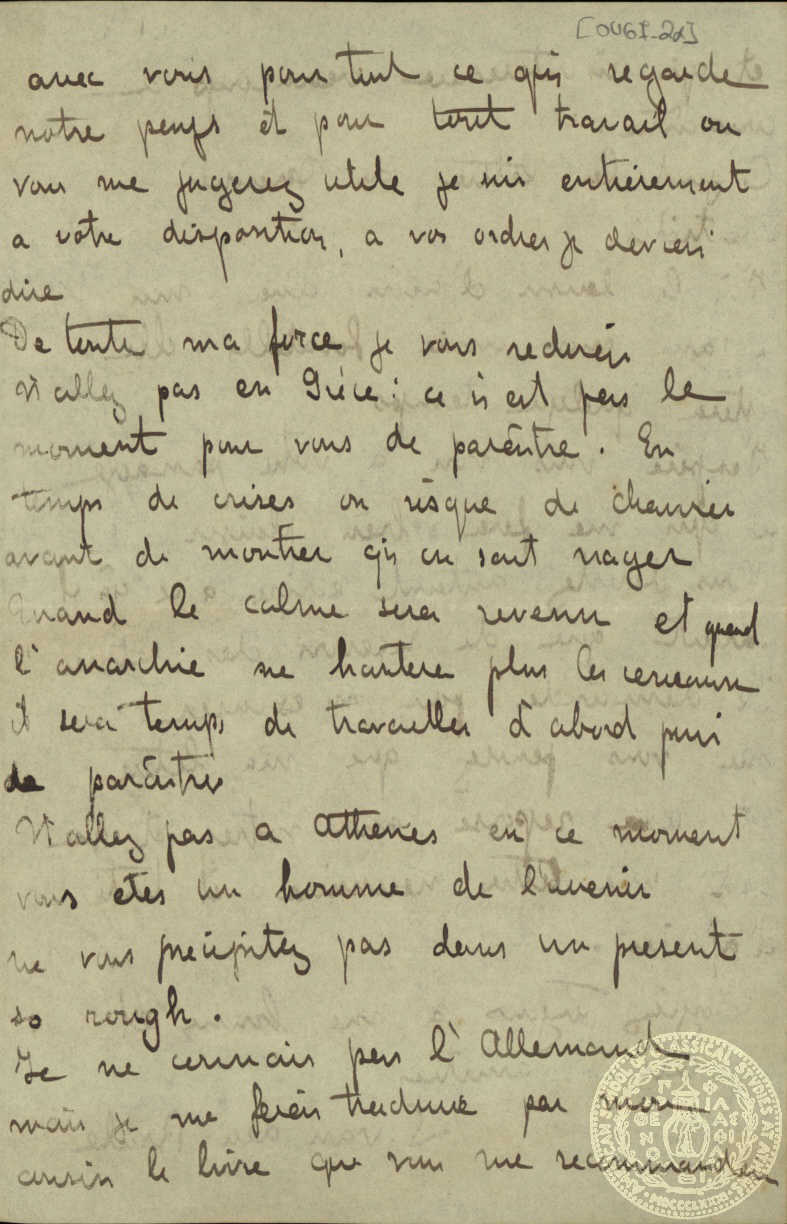 [OU6I-22]
avec vous pour tout ce qui regarde
notre pays et pour tout travail ou
vous me jugerez utile je suis entièrement
a votre disposition, a vos ordres je devrais
dire
De toute ma force je vous redirais
N'allez pas en Grèce : ce n'est pas le
moment pour vous de paraître. En
temps de crises on risque de chavirer
avant de montrer qu'on sait nager
Quand le calme sera revenu et quand
l'anarchie ne hantera plus les cerveaux
il sera temps de travailler d'abord puis
de paraître
N'allez pas a Athenes en ce moment
vous etes un homme de l'avenir
ne vous précipitez pas dans un present
so rough.
Je ne connais pas l'Allemand
mais je me ferais traduire par mon
cousin le livre que vous me recommandez